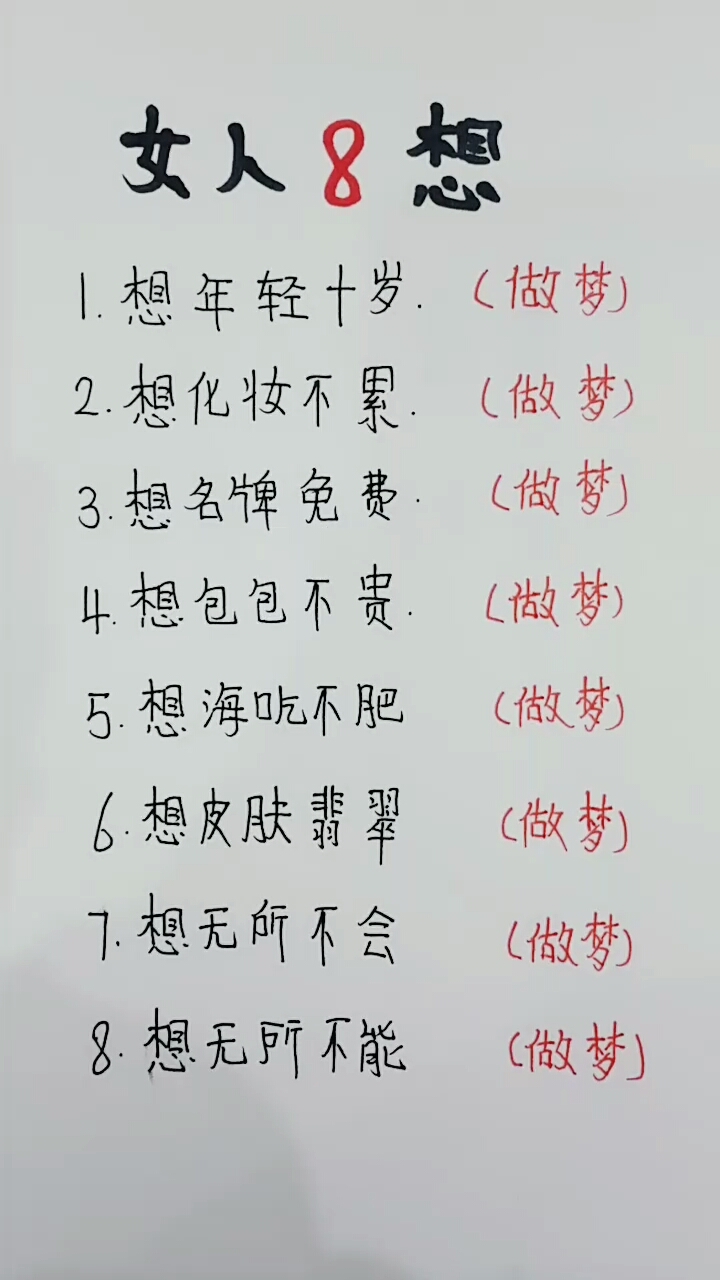 女人8想
1.想年轻十岁.(做梦)
2.想化妆不累.(做梦)
3.想名牌免费.(做梦)
4.想包包不贵.(做梦)
5.想海吃不肥(做梦)
6.想皮肤翡翠(做梦)
7.想无所不会(做梦)
8.想无所不能(做梦)